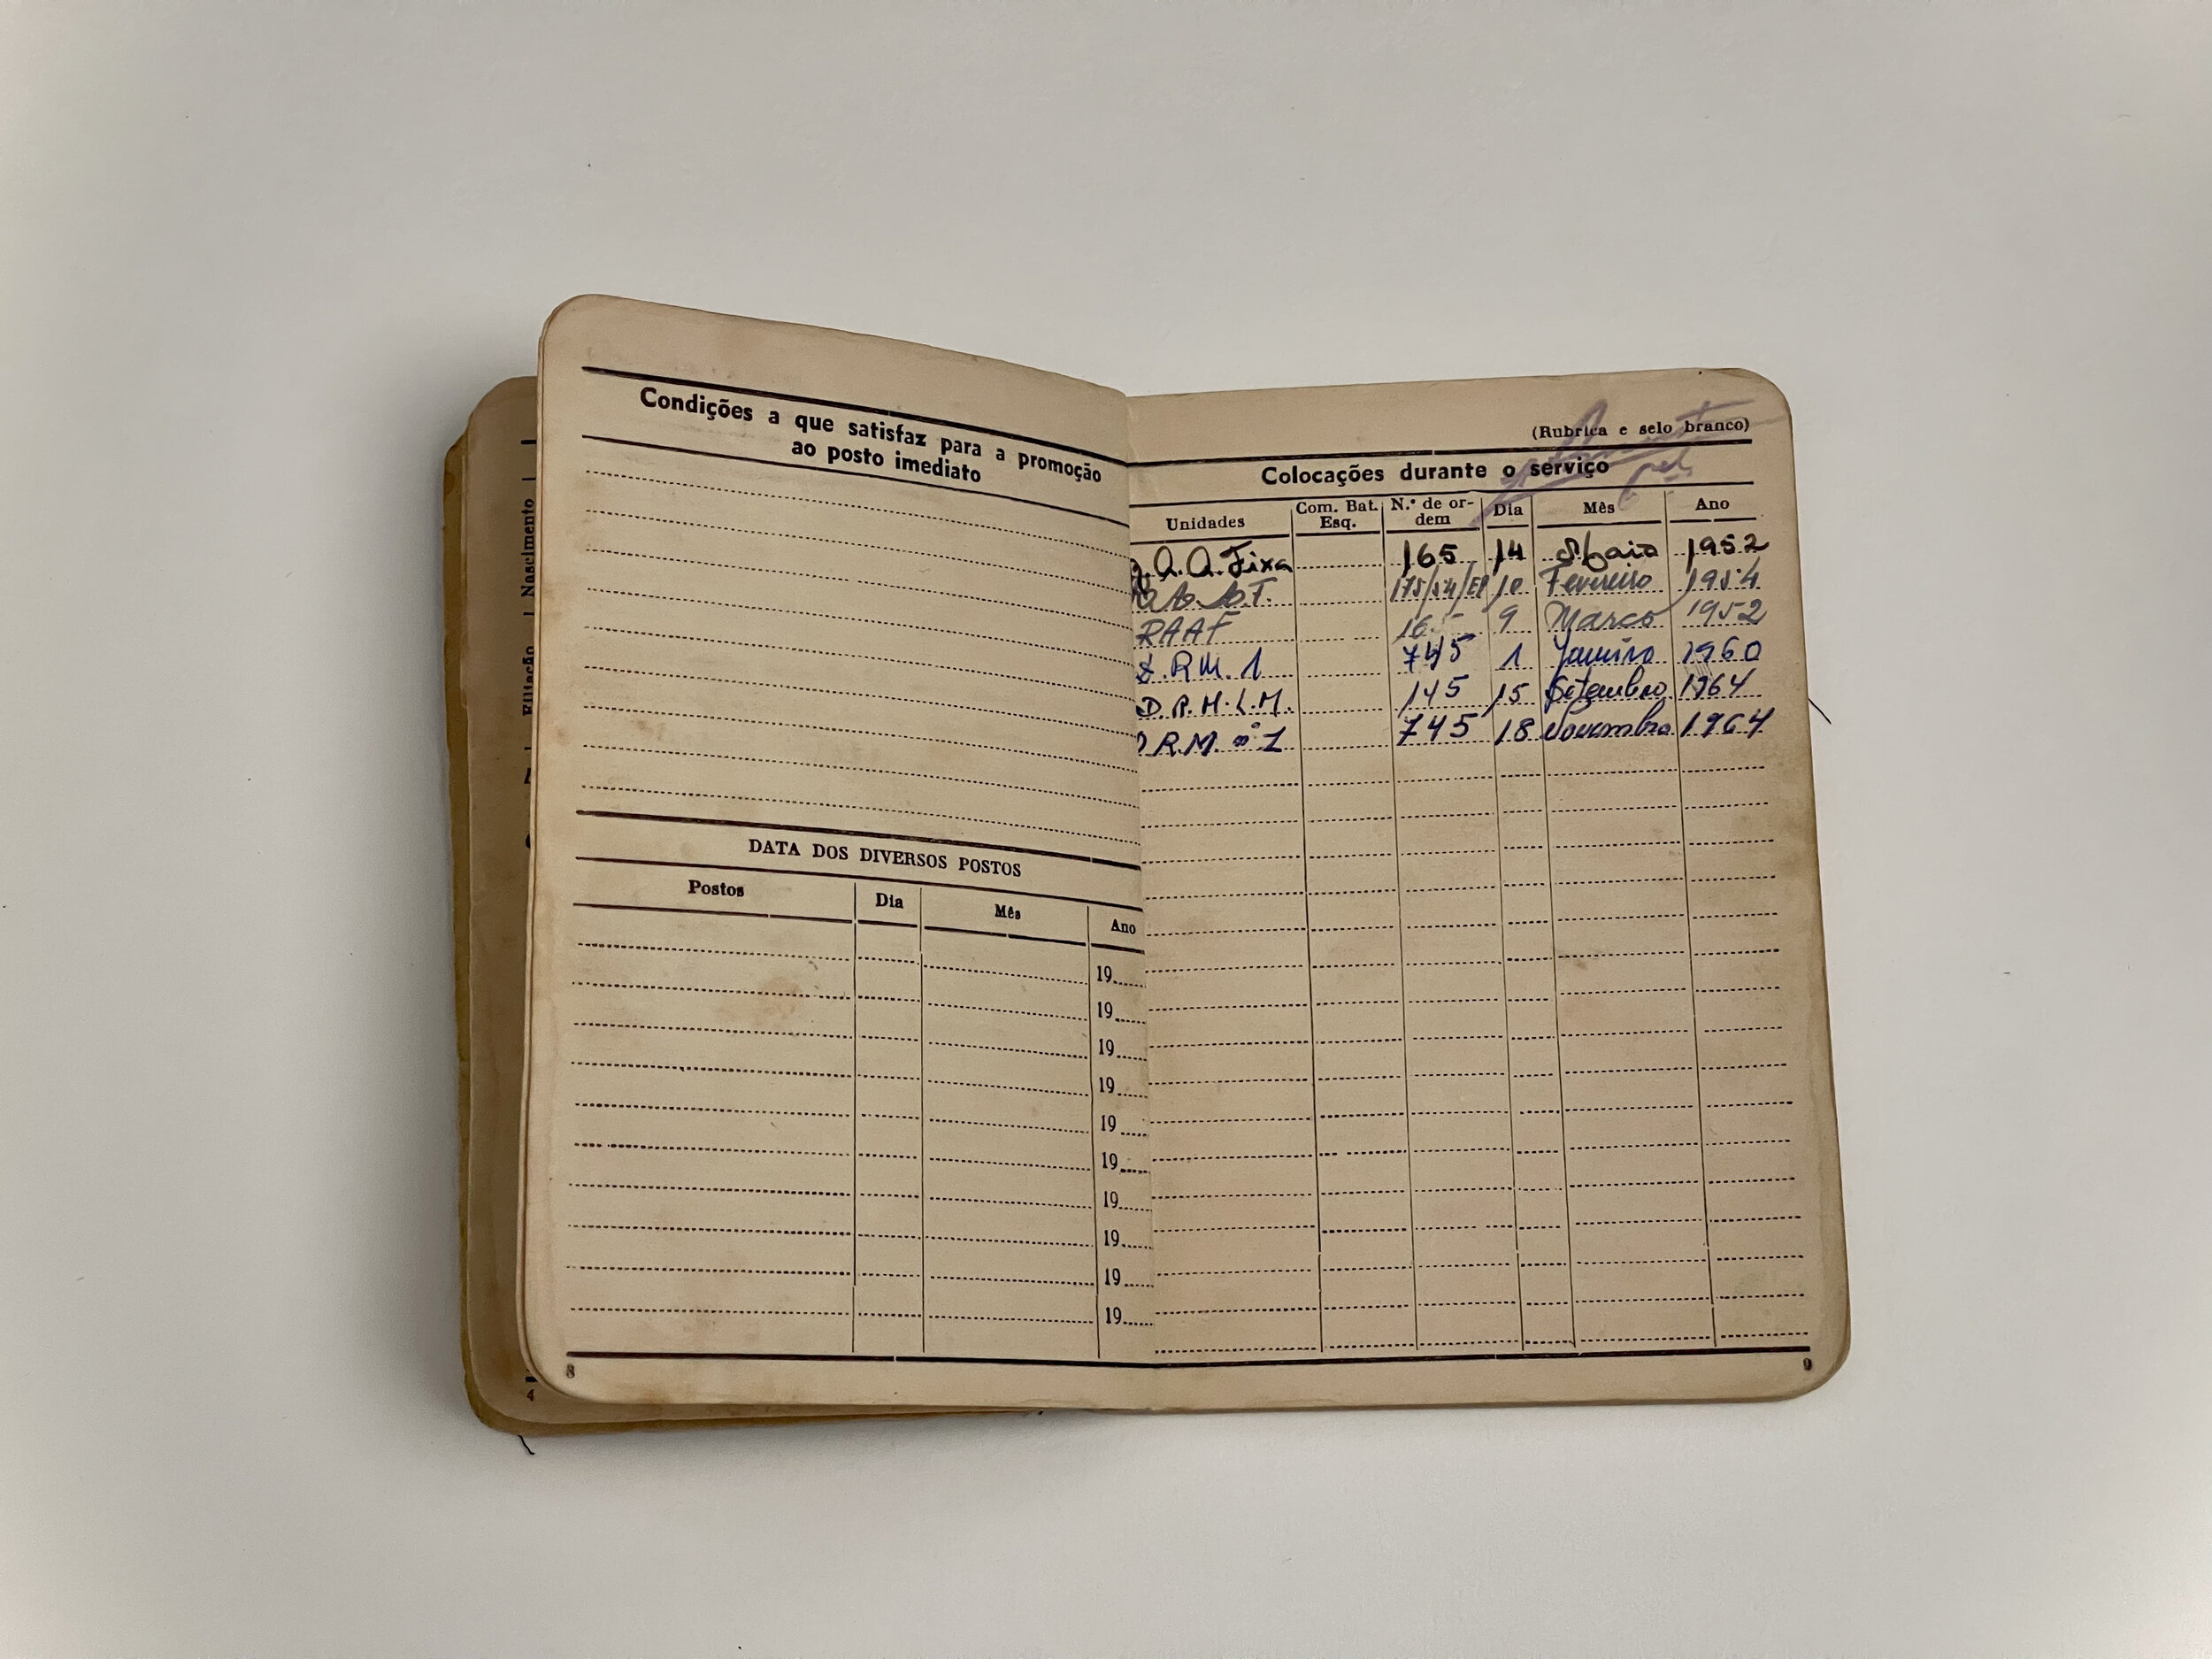 Nascimento
Filiação
4
Condições a que satisfaz para a promoção
ao posto imediato
DATA DOS DIVERSOS POSTOS
Postos Dia Mês Ano
19
19
19
19
19
19
19
19
19
19
8
(Rubrica e selo branco)
Colocações durante o serviço
Unidades Com. Bat. Esq. N.º de or-dem Dia Mês Ano
A. A. Fixa 165 14 Maio 1952
175/54/EP 10 Fevereiro 1954
RAAF 165 9 Março 1952
R.M. 1 745 1 Janeiro 1960
D.R.M.L.M. 145 15 Setembro 1964
D R.M. nº 1 745 18 Novembro 1964
9